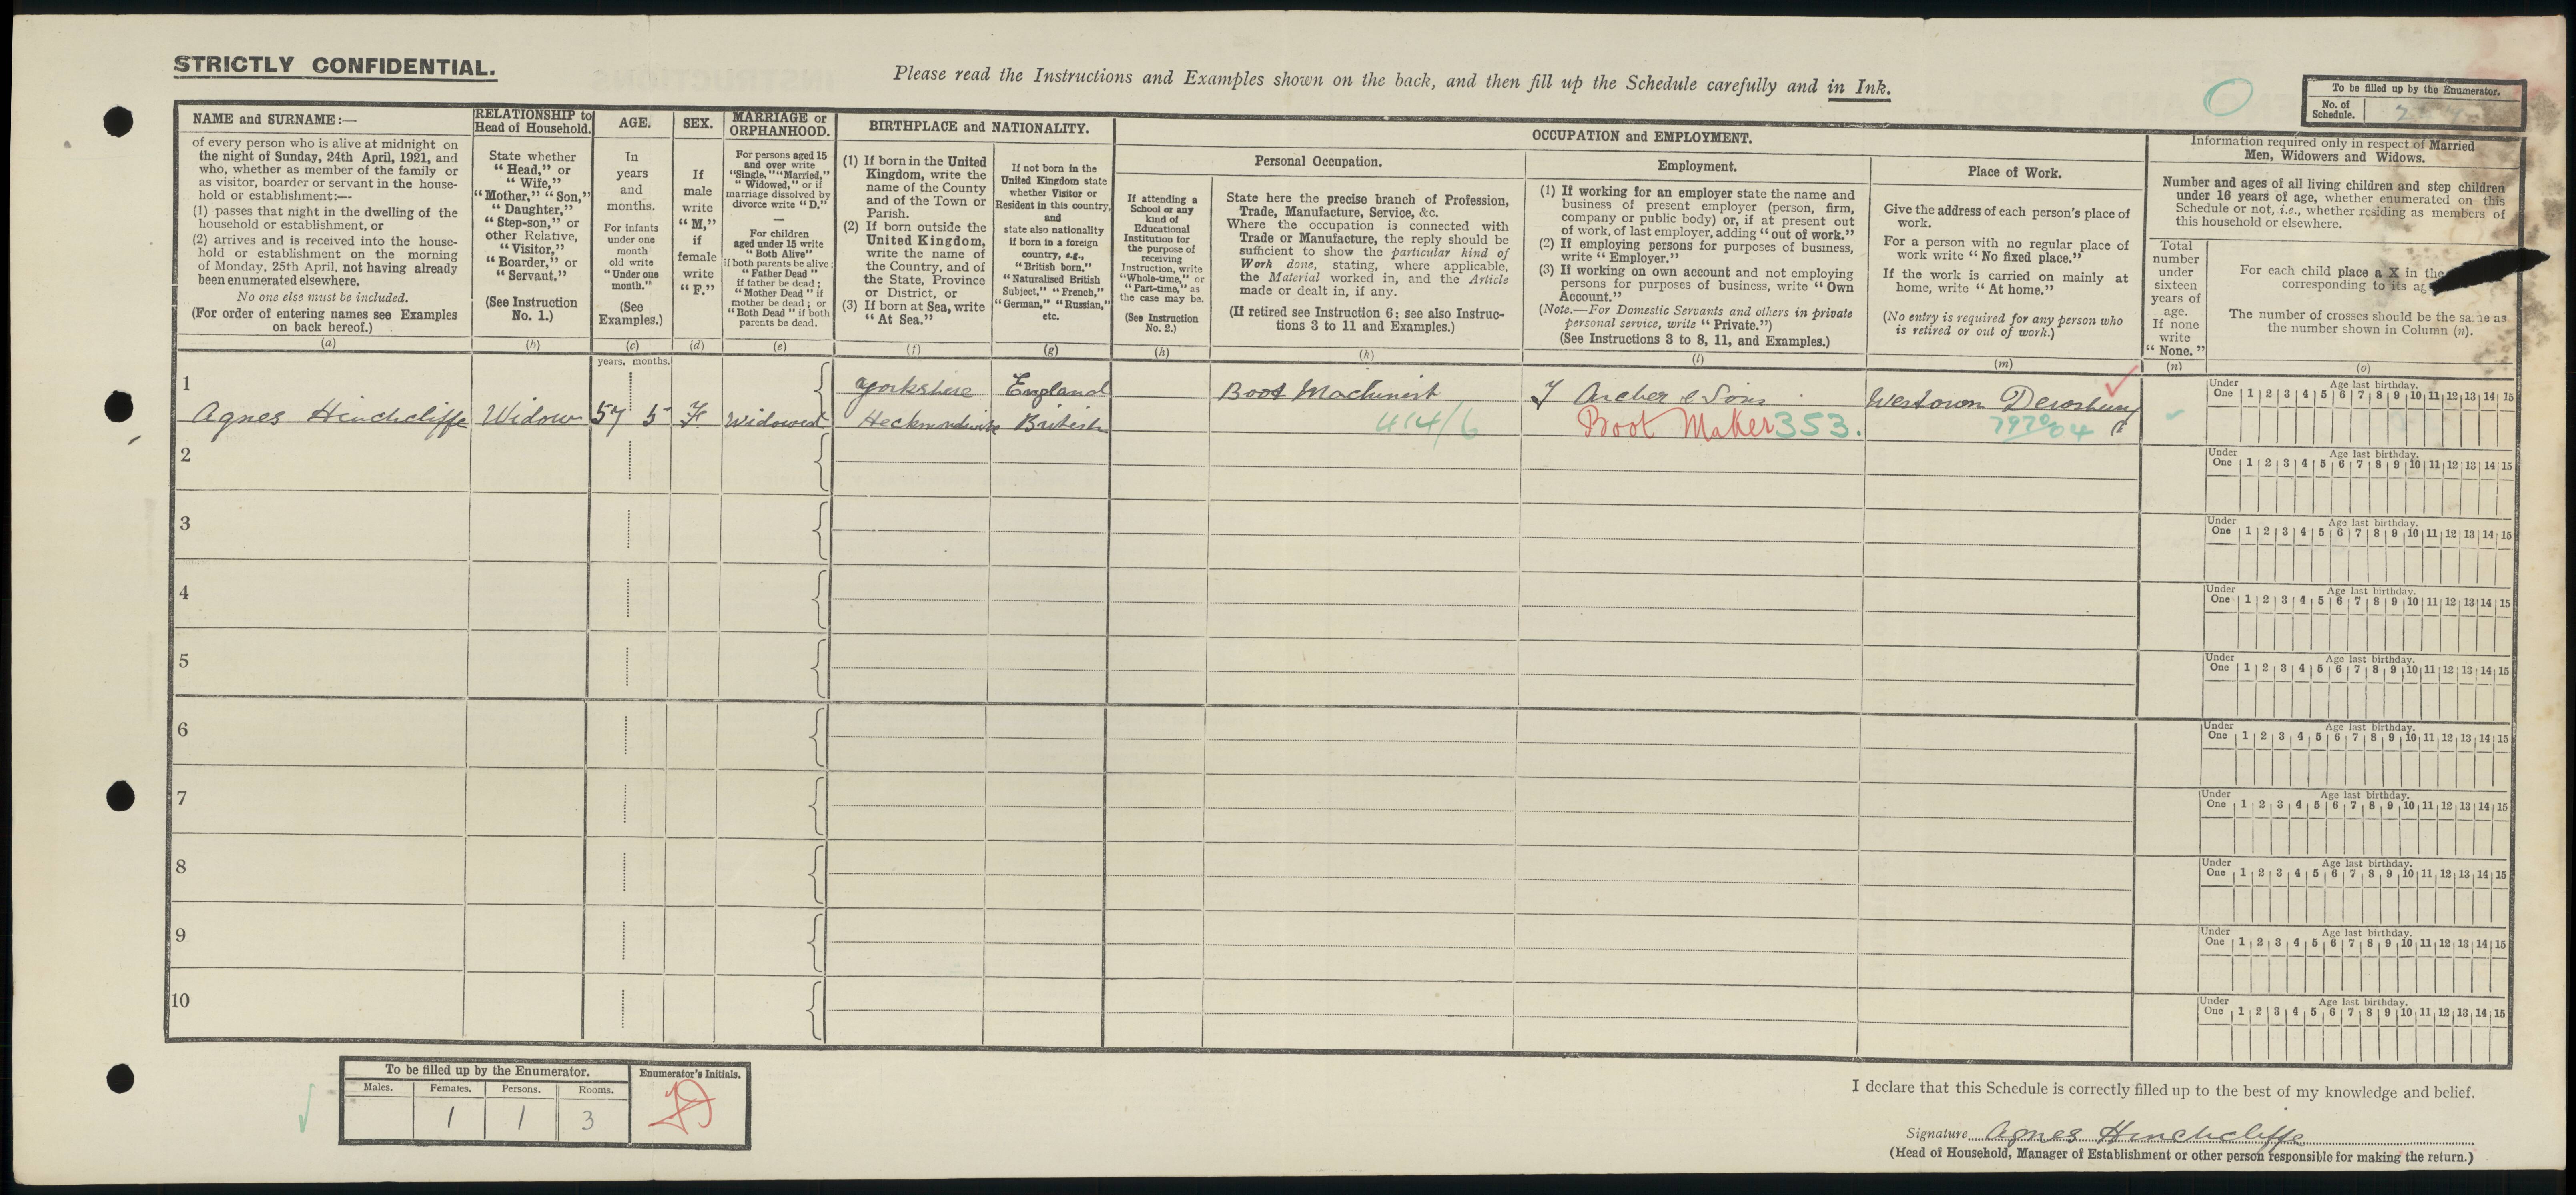 STRICTLY CONFIDENTIAL.
Please read the Instructions and Examples shown on the back, and then fill up the Schedule carefully and in Ink.
To be filled up by the Enumerator.
No. of
Schedule.
NAME and SURNAME:—
of every person who is alive at midnight on
the night of Sunday, 24th April, 1921, and
who, whether as member of the family or
as visitor, boarder or servant in the house-
hold or establishment:—
(1) passes that night in the dwelling of the
household or establishment, or
(2) arrives and is received into the house-
hold or establishment on the morning
of Monday, 25th April, not having already
been enumerated elsewhere.
No one else must be included.
(For order of entering names see Examples
on back hereof.)
(a)
RELATIONSHIP to
Head of Household.
State whether
"Head," or
"Wife,"
"Mother," "Son,"
"Daughter,"
"Step-son," or
other Relative,
"Visitor,"
"Boarder," or
"Servant."
(See Instruction
No. 1.)
(b)
AGE.
In
years
and
months.
For infants
under one
month
old write
"Under one
month."
(See
Examples.)
(c)
SEX.
If
male
write
"M,"
if
female
write
"F."
(d)
MARRIAGE or
ORPHANHOOD.
For persons aged 15
and over write
"Single," "Married,"
"Widowed," or if
marriage dissolved by
divorce write "D."
—
For children
aged under 15 write
"Both Alive"
if both parents be alive;
"Father Dead"
if father be dead;
"Mother Dead" if
mother be dead; or
"Both Dead" if both
parents be dead.
(e)
BIRTHPLACE and NATIONALITY.
(1) If born in the United
Kingdom, write the
name of the County
and of the Town or
Parish.
(2) If born outside the
United Kingdom,
write the name of
the Country, and of
the State, Province
or District, or
(3) If born at Sea, write
"At Sea."
(f)
If not born in the
United Kingdom state
whether Visitor or
Resident in this country,
and
state also nationality
if born in a foreign
country, e.g.,
"British born,"
"Naturalised British
Subject," "French,"
"German," "Russian,"
etc.
(g)
OCCUPATION and EMPLOYMENT.
Personal Occupation.
If attending a
School or any
kind of
Educational
Institution for
the purpose of
receiving
Instruction, write
"Whole-time," or
"Part-time," as
the case may be.
(See Instruction
No. 2.)
(h)
State here the precise branch of Profession,
Trade, Manufacture, Service, &c.
Where the occupation is connected with
Trade or Manufacture, the reply should be
sufficient to show the particular kind of
Work done, stating, where applicable,
the Material worked in, and the Article
made or dealt in, if any.
(If retired see Instruction 6; see also Instruc-
tions 3 to 11 and Examples.)
(k)
Employment.
(1) If working for an employer state the name and
business of present employer (person, firm,
company or public body) or, if at present out
of work, of last employer, adding "out of work."
(2) If employing persons for purposes of business,
write "Employer."
(3) If working on own account and not employing
persons for purposes of business, write "Own
Account."
(Note.—For Domestic Servants and others in private
personal service, write "Private.")
(See Instructions 3 to 8, 11, and Examples.)
(l)
Place of Work.
Give the address of each person's place of
work.
For a person with no regular place of
work write "No fixed place."
If the work is carried on mainly at
home, write "At home."
(No entry is required for any person who
is retired or out of work.)
(m)
Information required only in respect of Married
Men, Widowers and Widows.
Number and ages of all living children and step children
under 16 years of age, whether enumerated on this
Schedule or not, i.e., whether residing as members of
this household or elsewhere.
Total
number
under
sixteen
years of
age.
If none
write
"None."
(n)
For each child place a X in the
corresponding to its ag
The number of crosses should be the same as
the number shown in Column (n).
(o)
years. months.
1
Agnes Hinchcliffe Widow 57 5 F Widowed
Yorkshire England
Heckmondwike British
Boot Machinist
414/6
J Archer & Sons
Boot Maker 353.
Westown Dewsbury
Under One Age last birthday. 1 2 3 4 5 6 7 8 9 10 11 12 13 14 15
2
Under One Age last birthday. 1 2 3 4 5 6 7 8 9 10 11 12 13 14 15
3
Under One Age last birthday. 1 2 3 4 5 6 7 8 9 10 11 12 13 14 15
4
Under One Age last birthday. 1 2 3 4 5 6 7 8 9 10 11 12 13 14 15
5
Under One Age last birthday. 1 2 3 4 5 6 7 8 9 10 11 12 13 14 15
6
Under One Age last birthday. 1 2 3 4 5 6 7 8 9 10 11 12 13 14 15
7
Under One Age last birthday. 1 2 3 4 5 6 7 8 9 10 11 12 13 14 15
8
Under One Age last birthday. 1 2 3 4 5 6 7 8 9 10 11 12 13 14 15
9
Under One Age last birthday. 1 2 3 4 5 6 7 8 9 10 11 12 13 14 15
10
Under One Age last birthday. 1 2 3 4 5 6 7 8 9 10 11 12 13 14 15
To be filled up by the Enumerator.
Males. Females. Persons. Rooms.
1 1 3
Enumerator's Initials.
I declare that this Schedule is correctly filled up to the best of my knowledge and belief.
Signature Agnes Hinchcliffe
(Head of Household, Manager of Establishment or other person responsible for making the return.)